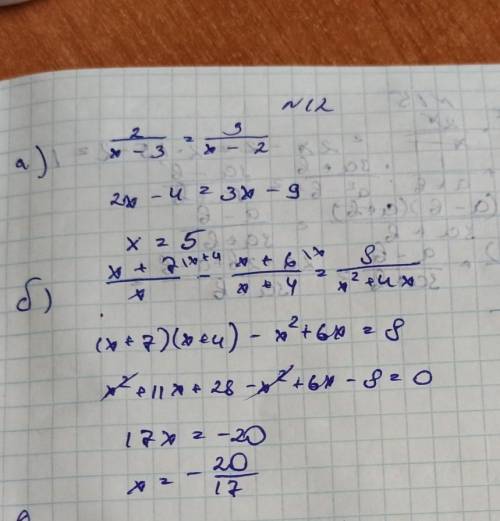 №12
а) 2/(x - 3) = 3/(x - 2)
2x - 4 = 3x - 9
x = 5
б) (x + 7)/x ^(\x+4) - (x + 6)/(x + 4) ^(\x) = 8/(x² + 4x)
(x + 7)(x + 4) - x² + 6x = 8
x² + 11x + 28 - x² + 6x - 8 = 0
17x = -20
x = - 20/17